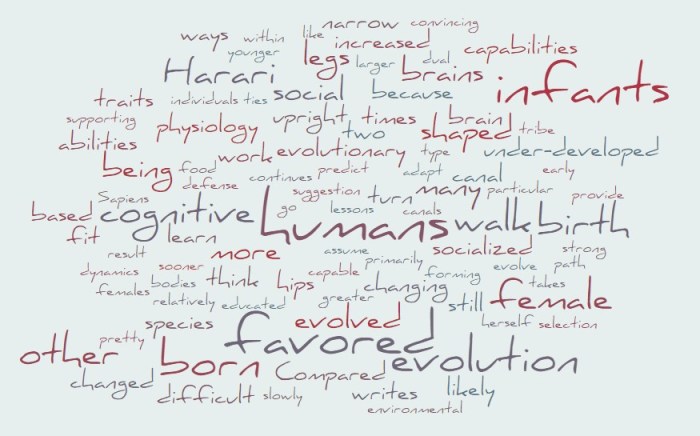 narrow convincing
ways within like increased capabilities
younger legs larger dual
Harari brains infants
traits individuals ties social because
supporting physiology upright times brain
abilities two shaped tribe
being food work evolutionary type under-developed
defense continues predict adapt canal early
Sapiens suggestion turn many particular provide
based cognitive go humans lessons canals walk birth
fit learn
result more assume socialized strong
dynamics sooner primarily evolve path
females bodies think hips capable changing forming takes
relatively educated greater still female
species evolved herself selection
pretty favored
other born evolution
changed Compared
difficult slowly writes likely
environmental